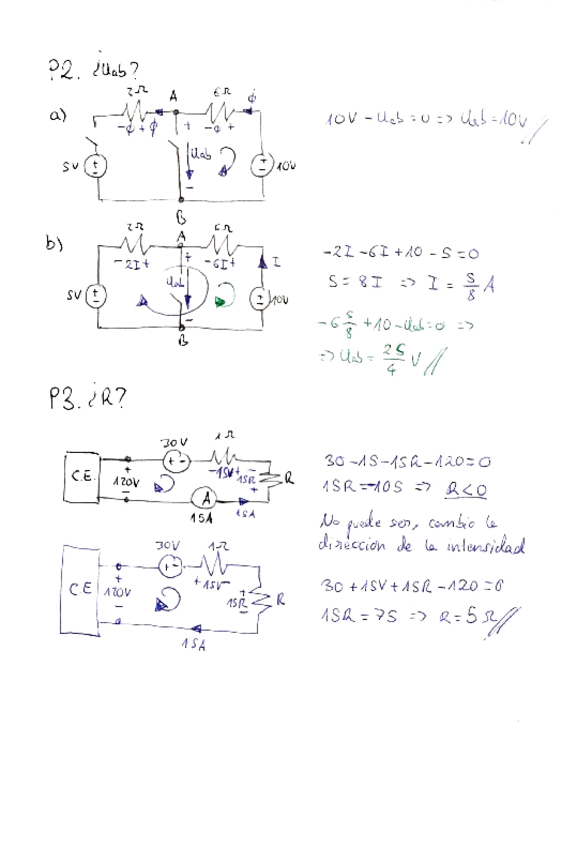 P2. ¿Uab?
a)
2Ω
A
6Ω
ϕ
-ϕ+
ϕ
+
-ϕ+
Uab
5V
10V
-
B
10V - Uab = 0 => Uab = 10V //
b)
2Ω
A
6Ω
-2I+
+
-6I+
I
Uab
5V
10V
-
B
-2I -6I +10 -5 = 0
5 = 8I => I = 5/8 A
-6 5/8 +10 -Uab = 0 =>
=> Uab = 25/4 V //
P3. ¿R?
30V
1Ω
C.E.
+
120V
-
+ -
-15V+
-
15R
+
R
A
15A
15A
30 -15 -15R -120 = 0
15R = -105 => R<0
No puede ser, cambio la
dirección de la intensidad
30V
1Ω
CE
+
120V
-
+ -
+15V-
+
15R
-
R
15A
30 + 15V + 15R - 120 = 0
15R = 75 => R = 5Ω //